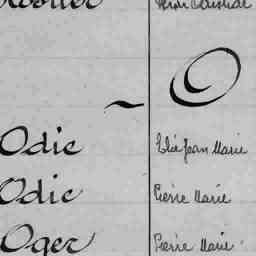 ~ O
Odie Elie Jean Marie
Odie Pierre Marie
Oger Pierre Marie